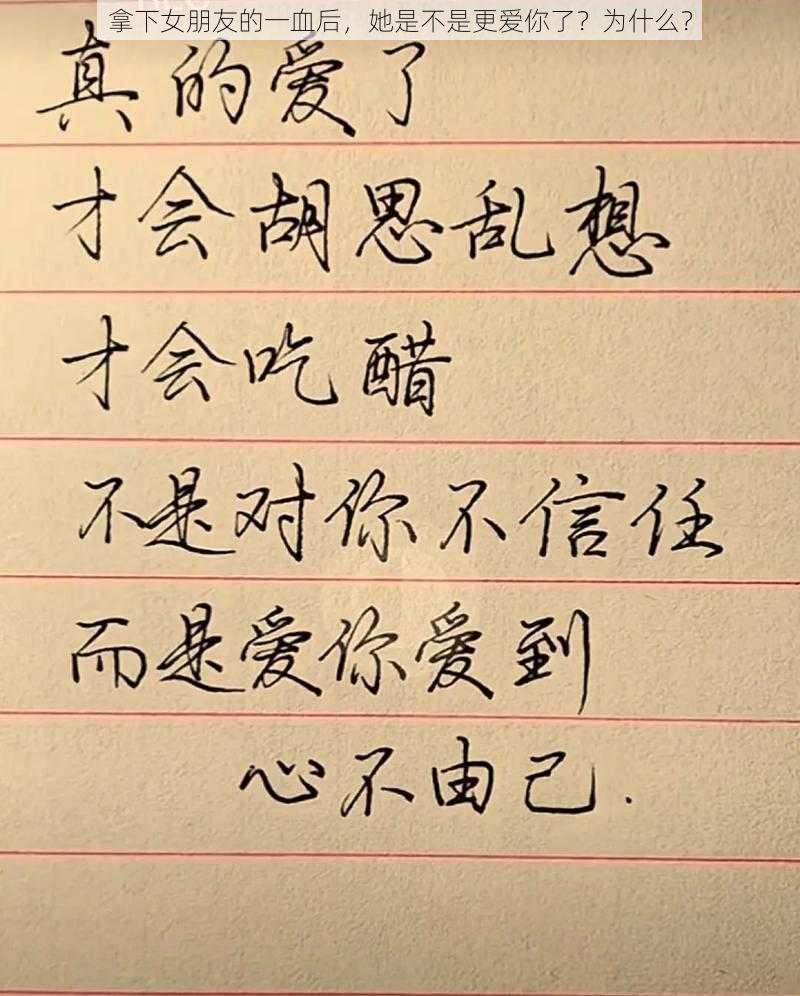 拿下女朋友的一血后，她是不是更爱你了？为什么？
真的爱了
才会胡思乱想
才会吃醋
不是对你不信任
而是爱你爱到
心不由己.